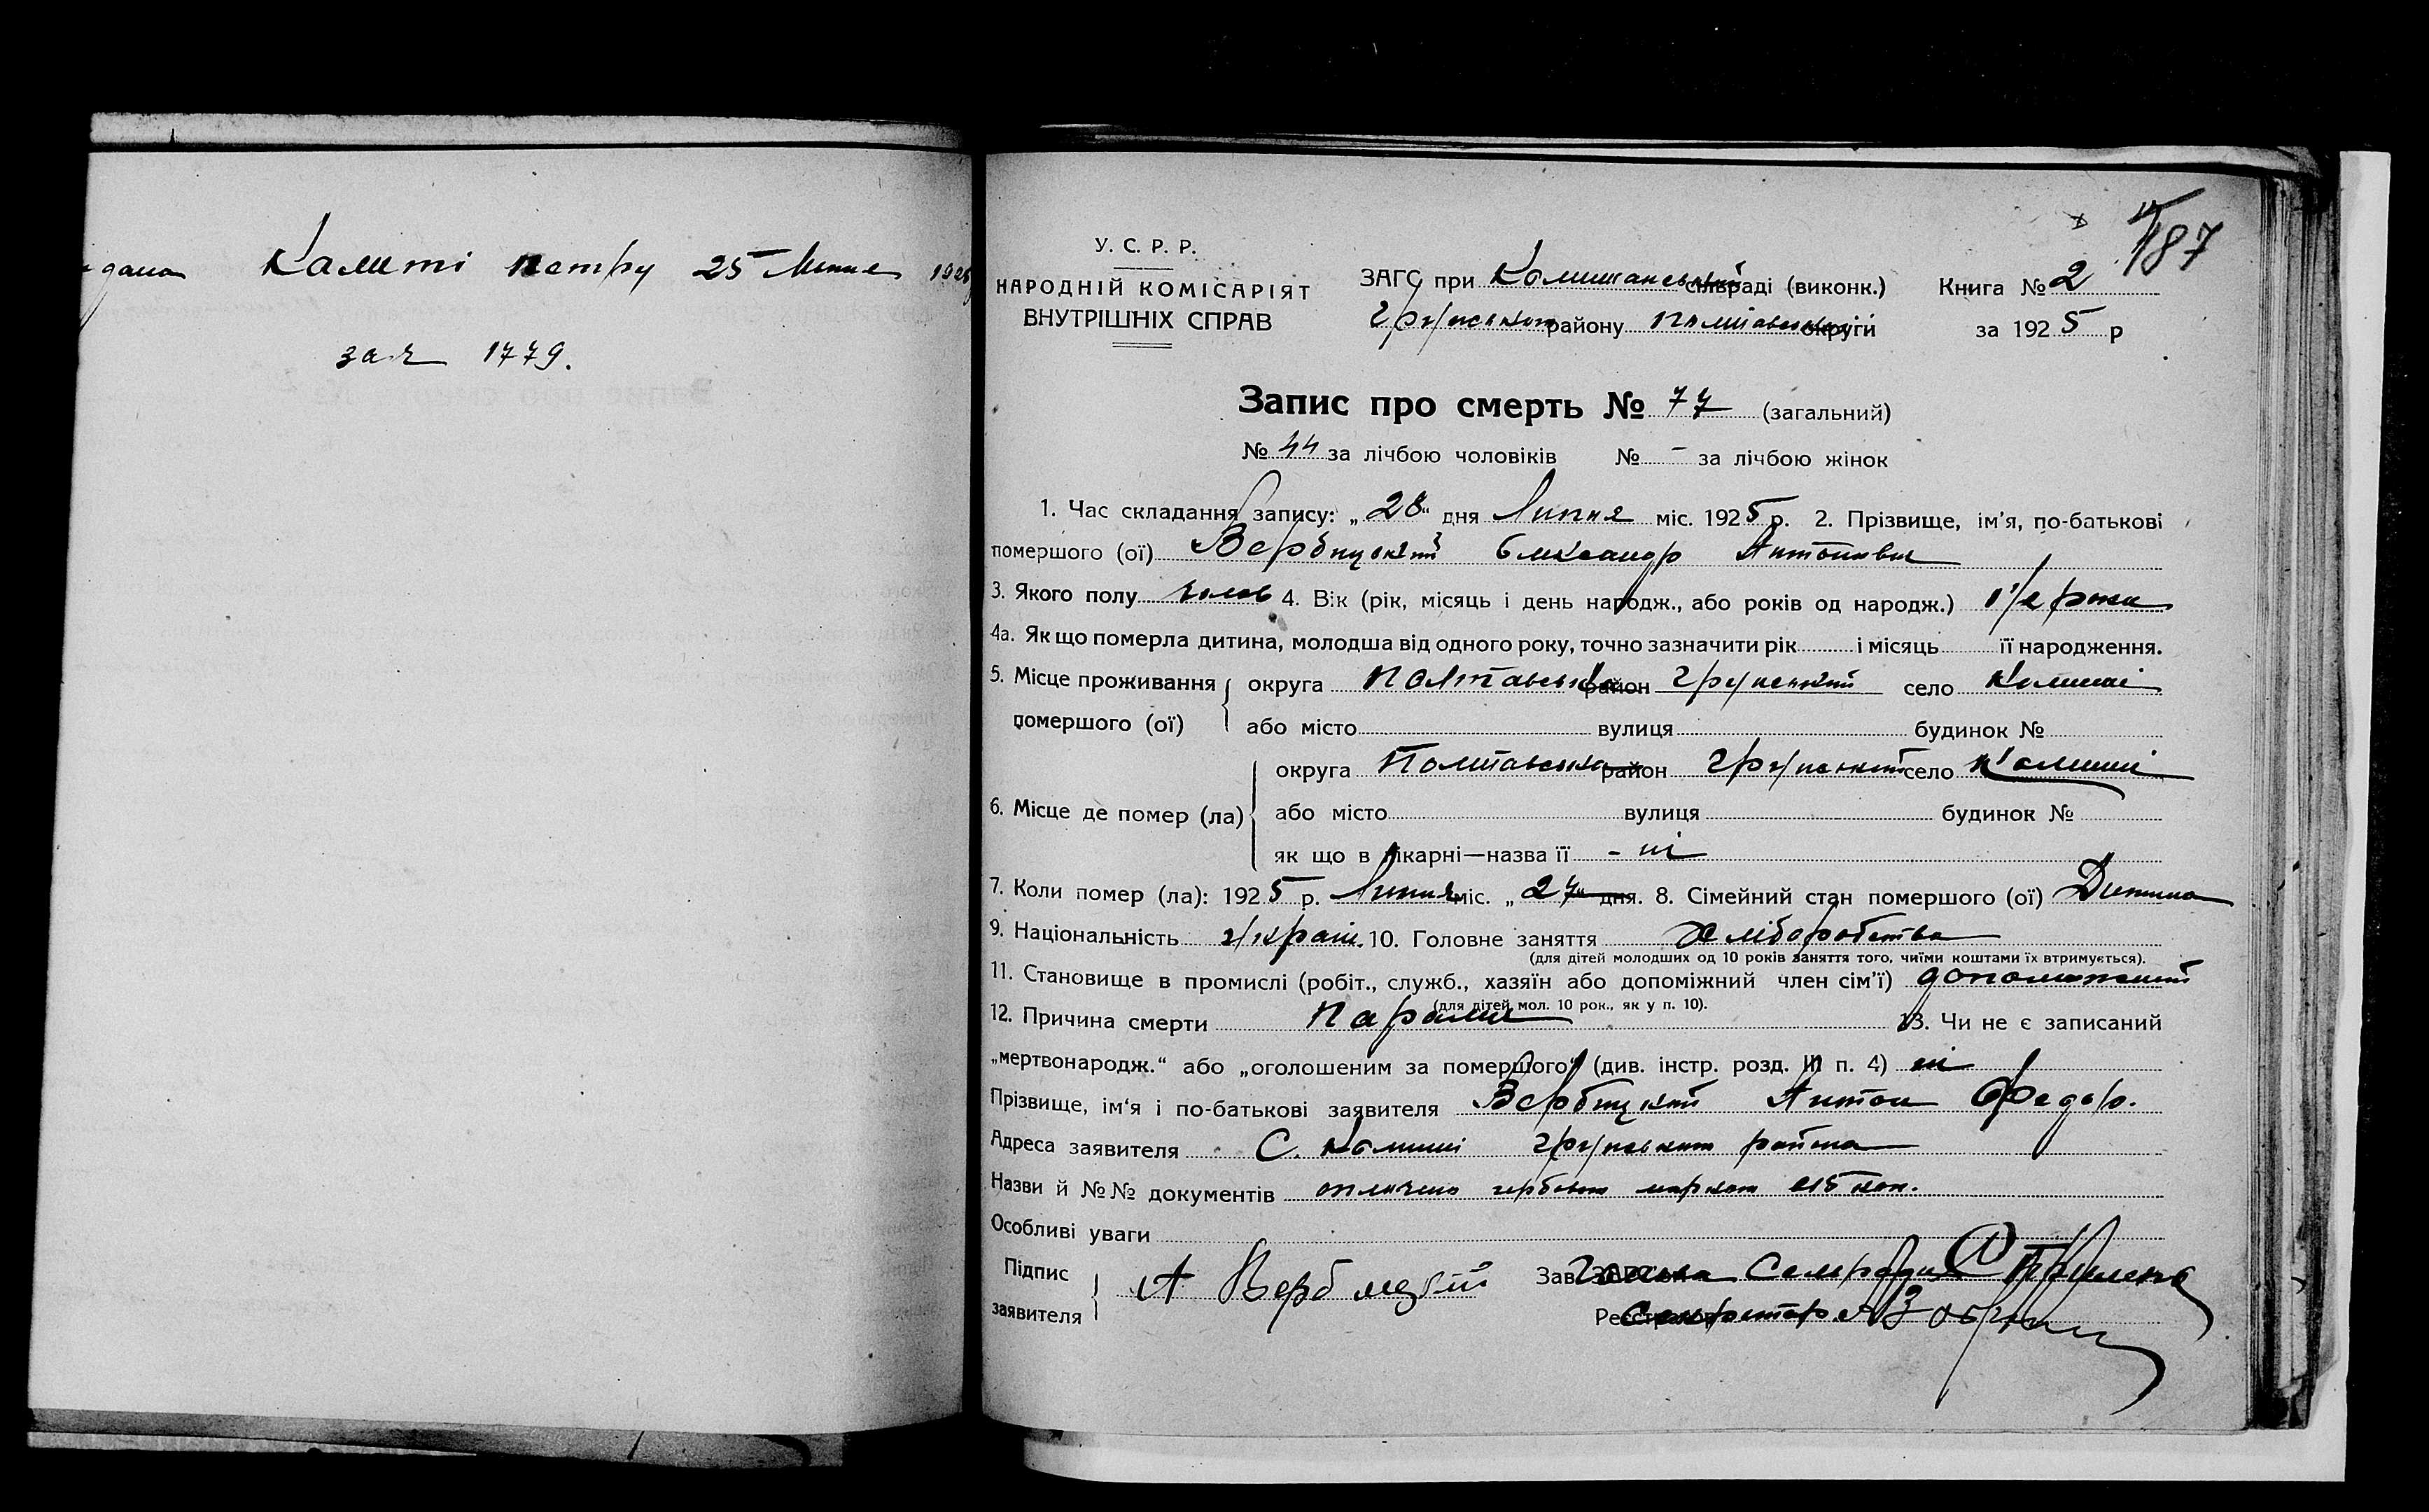 Калиті Петру 25 Липня
1779.
187
У. С. Р. Р.
НАРОДНІЙ КОМІСАРІЯТ
ВНУТРІШНІХ СПРАВ
ЗАГС при сільраді (виконк.)
району Полтавської округи
Книга № 2
за 1925 р
Запис про смерть № 77 (загальний)
№ 44 за лічбою чоловіків № - за лічбою жінок
1. Час складання запису: „28“ дня Липня міс. 1925 р. 2. Прізвище, ім'я, по-батькові
помершого (ої) Вербицький Олександр Антонович
3. Якого полу чолов 4. Вік (рік, місяць і день народж., або років од народж.) 1/2 рока
4а. Як що померла дитина, молодша від одного року, точно зазначити рік і місяць її народження.
5. Місце проживання помершого (ої) округа Полтавська район Грунський село Комиші
або місто вулиця будинок №
6. Місце де помер (ла) округа Полтавська район Грунський село Комиші
або місто вулиця будинок №
як що в лікарні—назва її - ні
7. Коли помер (ла): 1925 р. Липня міс. „27“ дня. 8. Сімейний стан помершого (ої) Дитина
9. Національність україн. 10. Головне заняття Хліборобство
(для дітей молодших од 10 років заняття того, чиїми коштами їх втримується).
11. Становище в промислі (робіт., служб., хазяїн або допоміжний член сім'ї) допоможний
(для дітей мол. 10 рок., як у п. 10).
12. Причина смерти 13. Чи не є записаний
„мертвонародж.“ або „оголошеним за помершого“ (див. інстр. розд. III п. 4) ні
Прізвище, ім'я і по-батькові заявителя Вербицький Антон Федор.
Адреса заявителя С. Комиші Грунського района
Назви й №№ документів оплачено гербовою маркою 15 коп.
Особливі уваги
Підпис заявителя А Вербицький
Зав. ЗАГС'ом Голова Сельради
Реєстратор Секретар